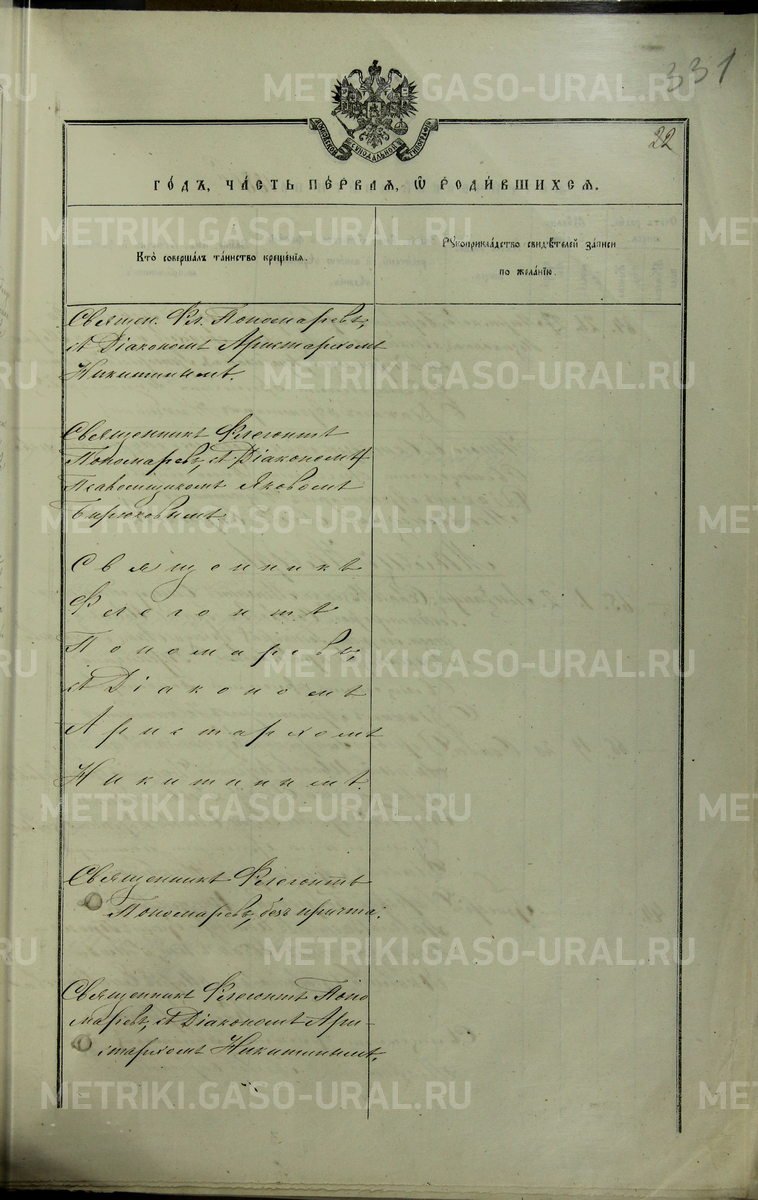 331
22
МОСКОВСКОЙ СѴНОДАЛЬНОЙ ТИПОГРАФІИ
ГО́ДЪ, ЧА́СТЬ ПЕ́РВАЯ, Ѿ РОДИ́ВШИХСЯ.
Кто̀ соверша́лъ та́инство креще́нїѧ.
Рꙋкоприкла́дство свидѣ́телей за́писи
по жела́нїю.
Священ. Фл. Пономаревъ,
съ Діакономъ Аристархомъ
Никитинымъ.
Священникъ Флегонтъ
Пономаревъ, съ Діакономъ
Псаломщикомъ Яковомъ
Бирюковымъ
Священникъ
Флегонтъ
Пономаревъ,
съ Діакономъ
Аристархомъ
Никитинымъ.
Священникъ Флегонтъ
Пономаревъ, безъ причта.
Священникъ Флегонтъ Поно
маревъ, съ Діакономъ Ари-
стархомъ Никитинымъ.
METRIKI.GASO-URAL.RU